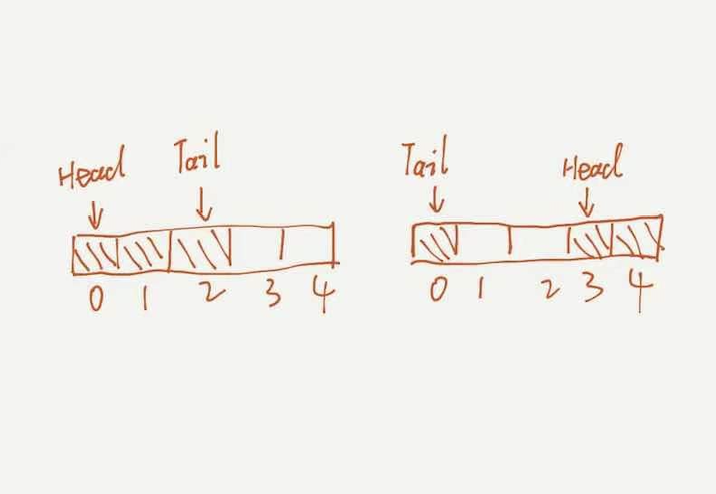 Head Tail
0 1 2 3 4
Tail Head
0 1 2 3 4